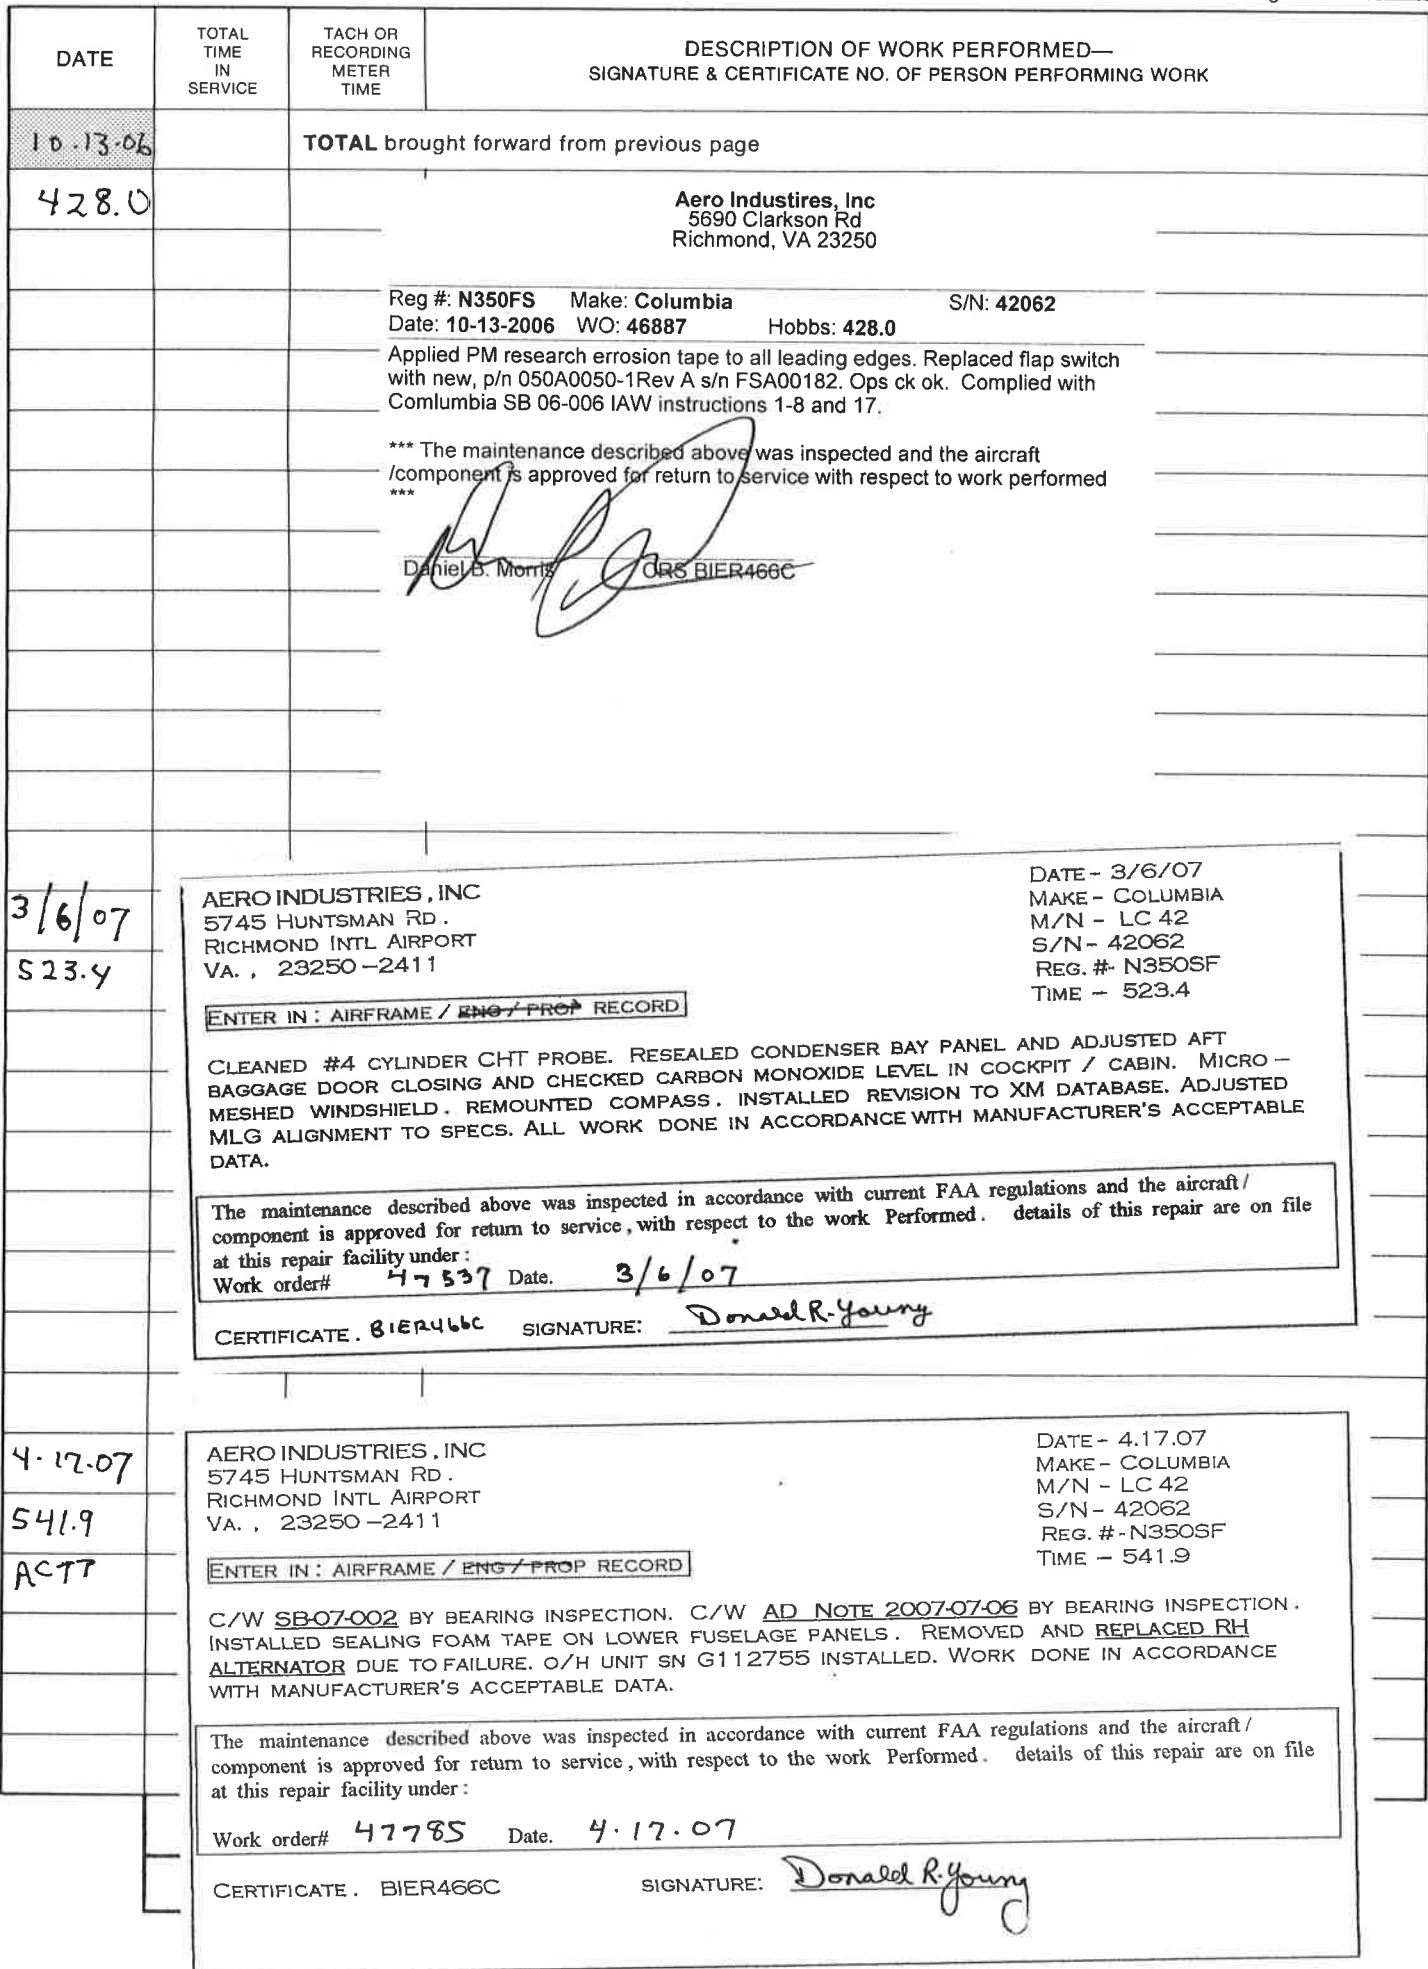 DATE
TOTAL TIME IN SERVICE
TACH OR RECORDING METER TIME
DESCRIPTION OF WORK PERFORMED—
SIGNATURE & CERTIFICATE NO. OF PERSON PERFORMING WORK
10.13.06
TOTAL brought forward from previous page
428.0
Aero Industires, Inc
5690 Clarkson Rd
Richmond, VA 23250
Reg #: N350FS Make: Columbia S/N: 42062
Date: 10-13-2006 WO: 46887 Hobbs: 428.0
Applied PM research errosion tape to all leading edges. Replaced flap switch
with new, p/n 050A0050-1Rev A s/n FSA00182. Ops ck ok. Complied with
Comlumbia SB 06-006 IAW instructions 1-8 and 17.
*** The maintenance described above was inspected and the aircraft
/component is approved for return to service with respect to work performed
***
Daniel B. Morris CRS BIER466C
3/6/07
523.4
AERO INDUSTRIES, INC
5745 HUNTSMAN RD.
RICHMOND INTL AIRPORT
VA., 23250-2411
DATE - 3/6/07
MAKE - COLUMBIA
M/N - LC 42
S/N - 42062
REG. #- N350SF
TIME - 523.4
ENTER IN: AIRFRAME / ENG / PROP RECORD
CLEANED #4 CYLINDER CHT PROBE. RESEALED CONDENSER BAY PANEL AND ADJUSTED AFT
BAGGAGE DOOR CLOSING AND CHECKED CARBON MONOXIDE LEVEL IN COCKPIT / CABIN. MICRO-
MESHED WINDSHIELD. REMOUNTED COMPASS. INSTALLED REVISION TO XM DATABASE. ADJUSTED
MLG ALIGNMENT TO SPECS. ALL WORK DONE IN ACCORDANCE WITH MANUFACTURER'S ACCEPTABLE
DATA.
The maintenance described above was inspected in accordance with current FAA regulations and the aircraft/
component is approved for return to service, with respect to the work Performed. details of this repair are on file
at this repair facility under:
Work order# 47537 Date. 3/6/07
CERTIFICATE. BIER466C SIGNATURE: Donald R. Young
4.17.07
541.9
ACTT
AERO INDUSTRIES, INC
5745 HUNTSMAN RD.
RICHMOND INTL AIRPORT
VA., 23250-2411
DATE - 4.17.07
MAKE - COLUMBIA
M/N - LC 42
S/N - 42062
REG. #-N350SF
TIME - 541.9
ENTER IN: AIRFRAME / ENG / PROP RECORD
C/W SB-07-002 BY BEARING INSPECTION. C/W AD NOTE 2007-07-06 BY BEARING INSPECTION.
INSTALLED SEALING FOAM TAPE ON LOWER FUSELAGE PANELS. REMOVED AND REPLACED RH
ALTERNATOR DUE TO FAILURE. O/H UNIT SN G112755 INSTALLED. WORK DONE IN ACCORDANCE
WITH MANUFACTURER'S ACCEPTABLE DATA.
The maintenance described above was inspected in accordance with current FAA regulations and the aircraft/
component is approved for return to service, with respect to the work Performed. details of this repair are on file
at this repair facility under:
Work order# 47785 Date. 4.17.07
CERTIFICATE. BIER466C SIGNATURE: Donald R. Young